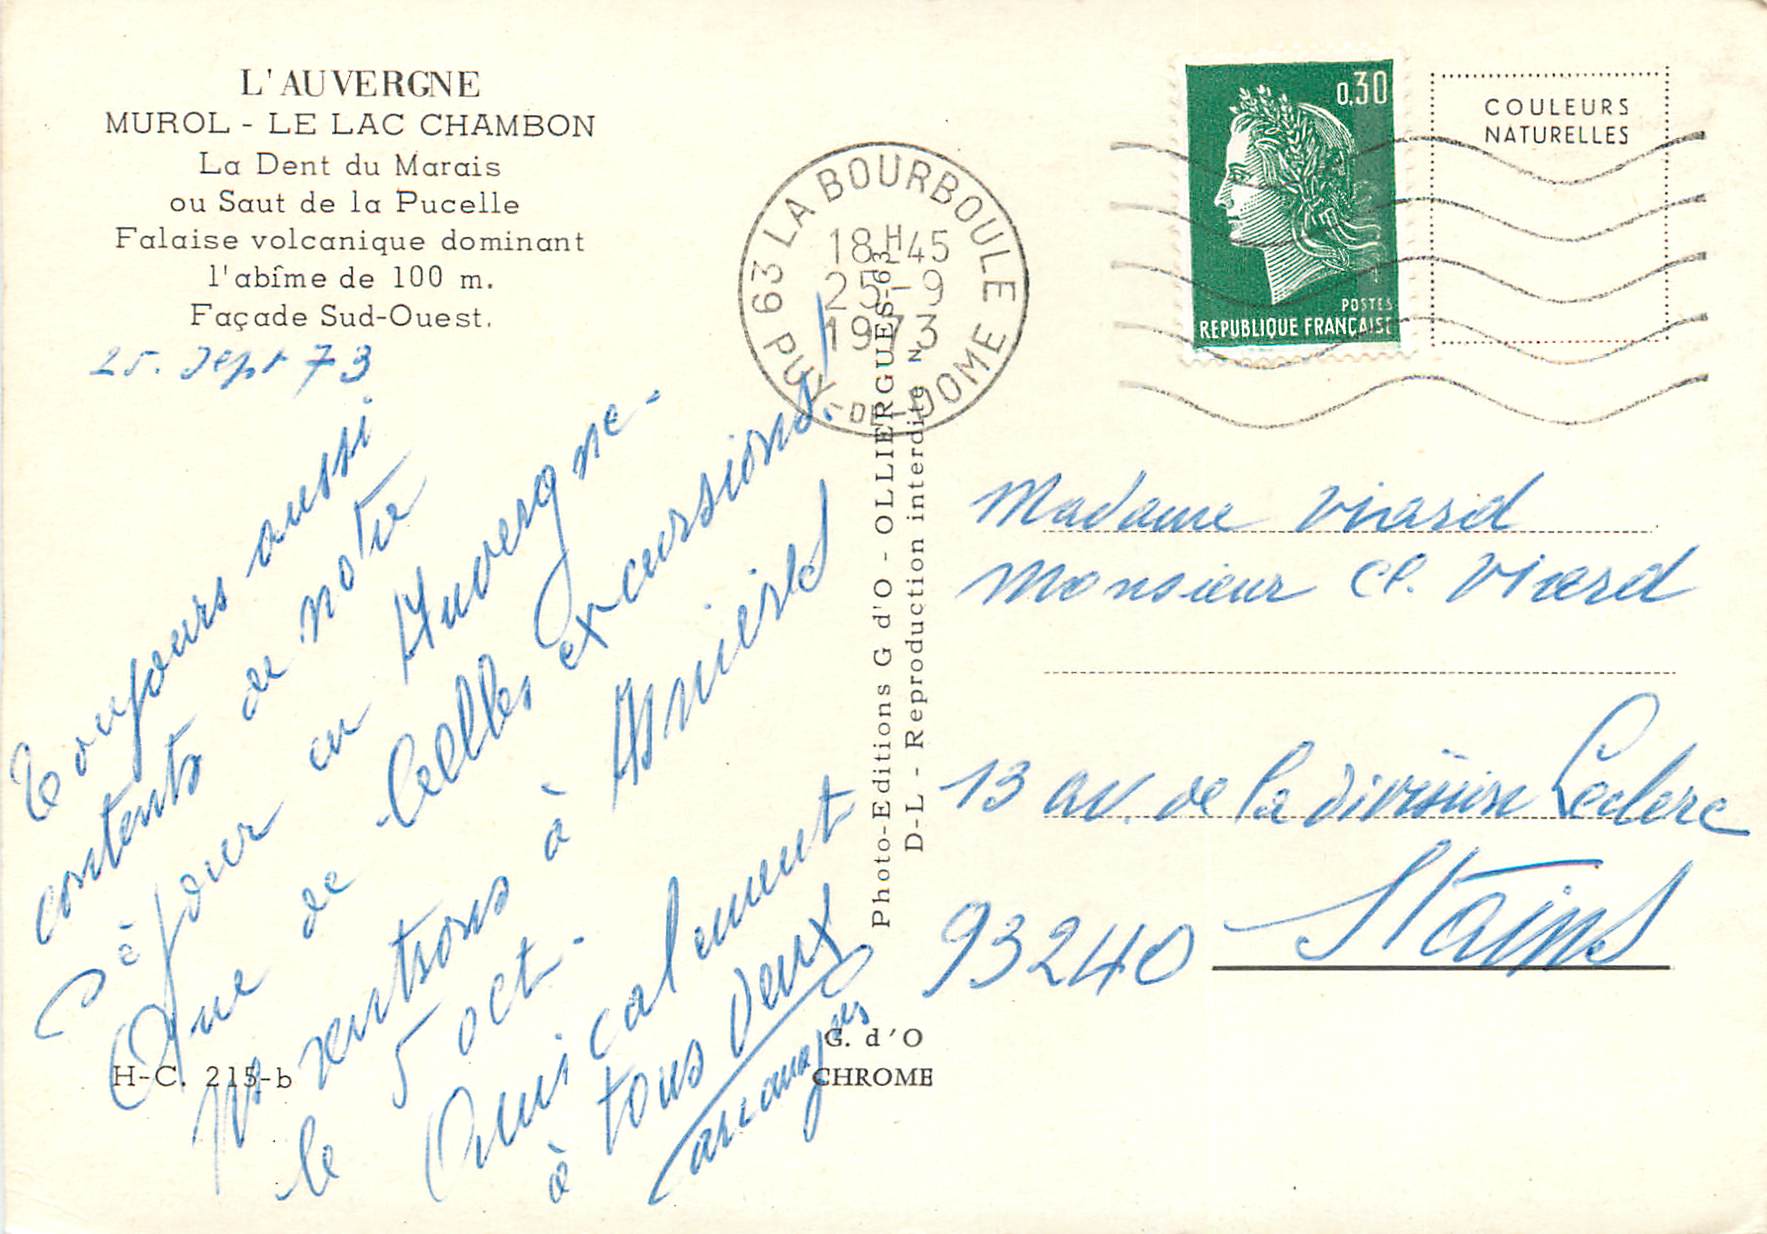 L'AUVERGNE
MUROL - LE LAC CHAMBON
La Dent du Marais
ou Saut de la Pucelle
Falaise volcanique dominant
l'abîme de 100 m.
Façade Sud-Ouest.
25. Sept 73
Toujours aussi
contents de notre
séjour en Auvergne.
Que de belles excursions!
Ns rentrons à Asnières
le 5 oct.
Amicalement
à tous deux
H-C. 215-b
G. d'O
CHROME
Photo-Editions G d'O - OLLIERGUES-63
D-L - Reproduction interdite N
63 LA BOURBOULE
18H45
25-9
1973
PUY-DE-DOME
0,30
POSTES
REPUBLIQUE FRANÇAISE
COULEURS
NATURELLES
Madame Viard
Monsieur Cl. Viard
13 av. de la division Leclerc
93240 Stains